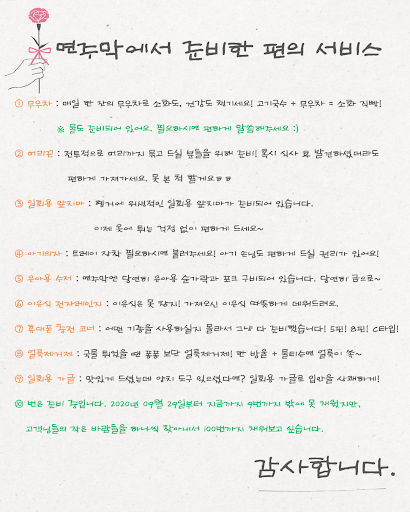 면주막에서 준비한 편의 서비스
① 무우차 : 매일 한 잔의 무우차로 소화도, 건강도 챙기세요! 고기국수 + 무우차 = 소화 직빵!
※ 물도 준비되어 있어요. 필요하시면 편하게 말씀해주세요 :)
② 머리끈 : 전투적으로 머리까지 묶고 드실 분들을 위해 준비! 혹시 식사 후 발견하셨더라도
편하게 가져가세요. 못 본 척 할게요ㅎㅎ
③ 일회용 앞치마 : 행거에 위생적인 일회용 앞치마가 준비되어 있습니다.
이제 옷에 튀는 걱정 없이 편하게 드세요~
④ 아기의자 : 트레이 장착 필요하시면 불러주세요! 아기 손님도 편하게 드실 권리가 있어요!
⑤ 유아용 수저 : 면주막엔 당연히 유아용 숟가락과 포크 구비되어 있습니다. 당연히 공으로~
⑥ 이유식 전자레인지 : 이유식은 못 참지! 가져오신 이유식 따뜻하게 데워드려요.
⑦ 휴대폰 충전 코너 : 어떤 기종을 사용하실지 몰라서 그냥 다 준비했습니다! 5핀! 8핀! C타입!
⑧ 얼룩제거제 : 국물 튀었을 땐 퐁퐁 보단 얼룩제거제! 한 방울 + 물티슈에 얼룩이 쏙~
⑨ 일회용 가글 : 맛있게 드셨는데 양치 도구 잊으셨다면? 일회용 가글로 입안을 상쾌하게!
⑩ 번은 준비 중입니다. 2020년 09월 29일부터 지금까지 9번까지 밖에 못 채웠지만,
고객님들의 작은 바람들을 하나씩 찾아내서 100번까지 채워보고 싶습니다.
감사합니다.